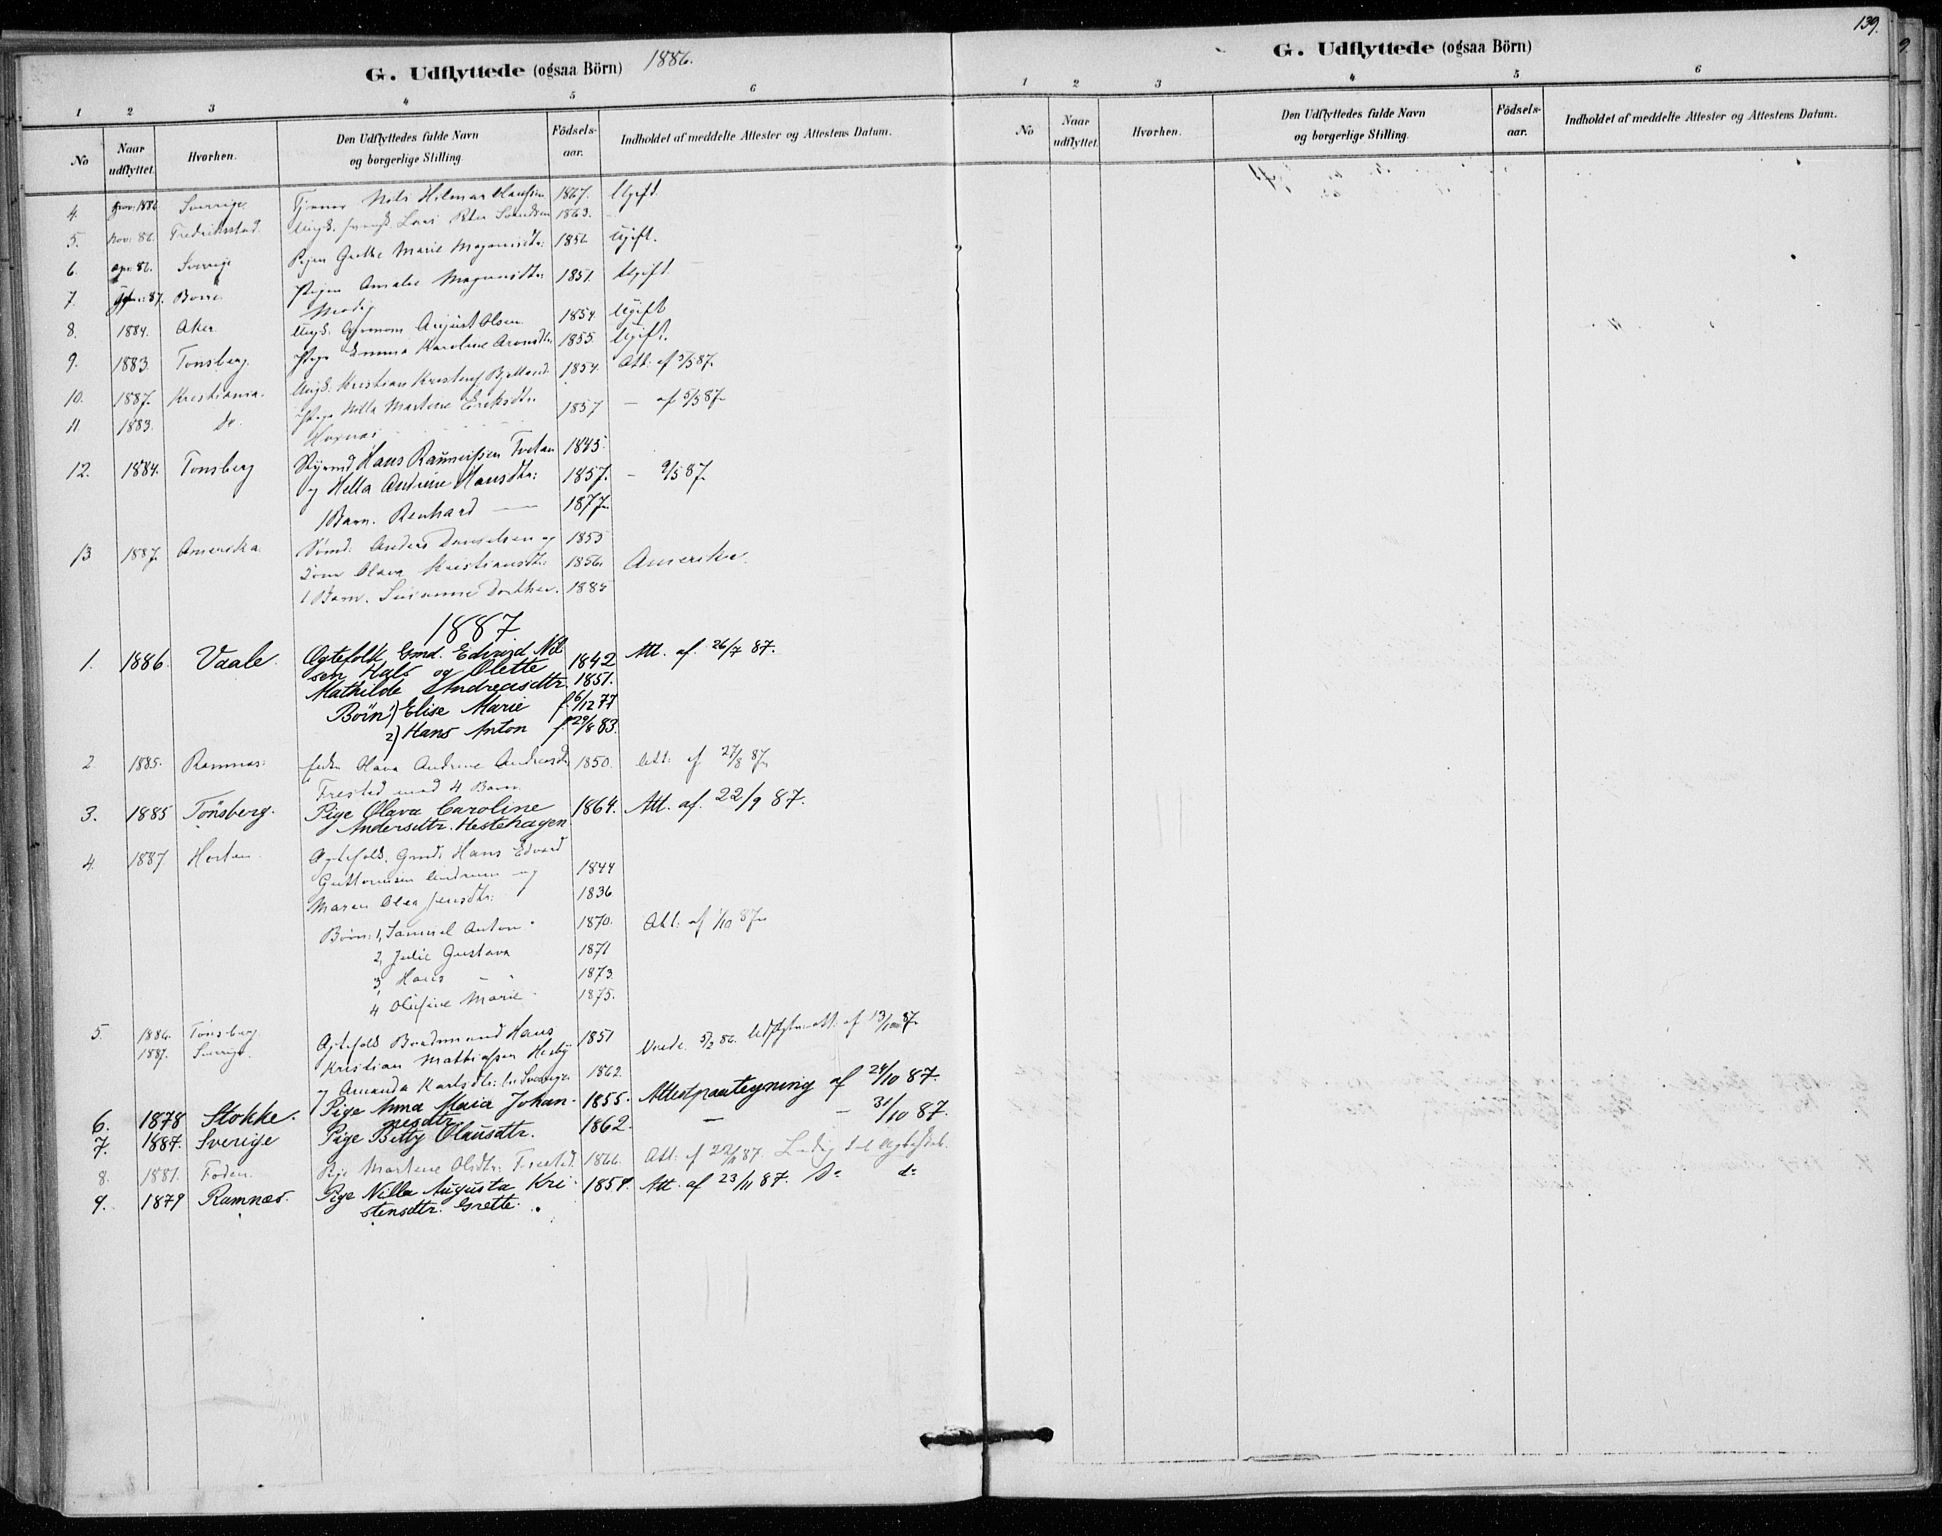 G. Udflyttede (ogsaa Börn) 1886.
1 2 3 4 5 6
No Naar udflyttet. Hvorhen. Den Udflyttedes fulde Navn og borgerlige Stilling. Födsels-aar. Indholdet af meddelte Attester og Attestens Datum.
4. 1886 Sverrige Nils Hilmar Hansen 1867. Ugift.
5. Nov: 86. Fredrikstad. Ungk. Lars Peter 1863.
6. 86. Sverige Pigen Grethe Marie 1856 Ugift.
7. 87. Borre. Pigen Amalie 1851. Ugift
8. 1884. Aker Ungk. August Olsen 1854 Ugift
9. 1883. Tonsberg. Pige Emma Karoline 1855 Ugift.
10. 1887. Kristiania. Ungk. Kristian 1854. Att: af 3/5 87.
11. 1883. do. Pige Nilla Martine Eriksdtr. 1857 — af 5/5 87.
12. 1884. Tonsberg Styrmd. Hans Tvetan 1845.
og Hella Andrine Hansdtr: 1857. — 9/5 87.
1 Barn. Renhard — 1877.
13 1887. Amerika Sömd: Anders Danielsen og 1855
Olava Kristiansdtr: 1856 Amerika.
1 Barn. Susanne Dorthea. 1885
1887
1. 1886. Vaale. Ægtefolk Gmd. Edvard Niel
sen Hals og Olette 1842 Att. af. 26/7 87.
Mathilde Andreasdttr. 1851.
Börn 1) Elise Marie f. 6/12 77
2) Hans Anton f. 29/8 83.
2 1885. Ramnæs: Olava Andrine Andreasdtr 1850. Att: af 27/8 87.
Frestad med 4 Barn.
3. 1885 Tönsberg. Pige Olava Caroline 1864. Att. af. 22/9 87.
Andersdtr. Hestehagen.
4. 1887 Horten Ægtefolk. Gmd: Hans Edvard
Guttormsen og 1844
Maren Olea Jensdtr: 1836
Börn: 1, Samuel Anton 1870. Att: af 1/10 87.
2, Julie Gustava 1871
3, Hans 1873.
4 Olufine Marie 1875.
5. 1886. Tönsberg. Ægtefolk Hans 1851
1887. Sverige. Kristian Mathiassen 5/2 86. att: af 13/10 87.
og Amanda Karlsdtr: 1862.
6. 1878 Stokke. Pige Anna Maria Johan- 1855. Attestpaategning af 24/10 87.
nesdtr.
7. 1887. Sverige Pige Betty Olausdtr. 1862. — — 31/10 87.
8. 1881. Foden. Pige Martine Olsdtr: Frestad. 1866. Att: af 22/11 87. Ledig til Ægteskab.
9. 1879 Ramnæs. Pige Nilla Augusta Kri- 1859. Att. af 23/11 87. Do do
stensdtr. Grette.
139.
G. Udflyttede (ogsaa Börn)
1 2 3 4 5 6
No Naar udflyttet. Hvorhen. Den Udflyttedes fulde Navn og borgerlige Stilling. Födsels-aar. Indholdet af meddelte Attester og Attestens Datum.